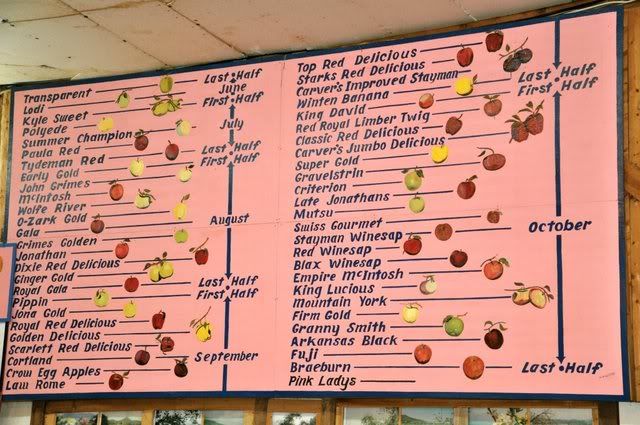 Transparent
Lodi
Kyle Sweet
Polyede
Summer Champion
Paula Red
Tydeman Red
Early Gold
John Grimes
McIntosh
Wolfe River
O-Zark Gold
Gala
Grimes Golden
Jonathan
Dixie Red Delicious
Ginger Gold
Royal Gala
Pippin
Jona Gold
Royal Red Delicious
Golden Delicious
Scarlett Red Delicious
Cortland
Crow Egg Apples
Law Rome
Last Half
June
First Half
July
Last Half
First Half
August
Last Half
First Half
September
Top Red Delicious
Starks Red Delicious
Carver's Improved Stayman
Winten Banana
King David
Red Royal Limber Twig
Classic Red Delicious
Carver's Jumbo Delicious
Super Gold
Gravelstrin
Criterion
Late Jonathans
Mutsu
Swiss Gourmet
Stayman Winesap
Red Winesap
Blax Winesap
Empire McIntosh
King Lucious
Mountain York
Firm Gold
Granny Smith
Arkansas Black
Fuji
Braeburn
Pink Ladys
Last Half
First Half
October
Last Half